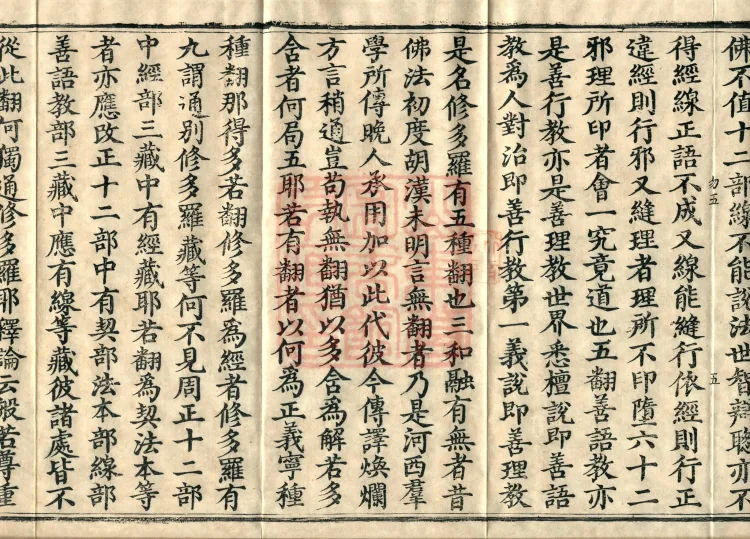 佛不值十二部線不能說法世智辯聰亦不
得經線正語不成又線能縫行依經則行正
違經則行邪又縫理者理所不印墮六十二
邪理所印者會一究竟道也五翻善語教亦
是善行教亦是善理教世界悉檀說即善語
教爲人對治即善行教第一義說即善理教
是名修多羅有五種翻也三和融有無者昔
佛法初度胡漢未明言無翻者乃是河西羣
學所傳晚人承用加以此代彼今傳譯煥爛
方言稍通豈苟執無翻猶以多含爲解若多
含者何局五耶若有翻者以何爲正義寧種
種翻那得多若翻修多羅爲經者修多羅有
九謂通別修多羅藏等何不見周正十二部
中經部三藏中有經藏耶若翻爲契法本等
者亦應改正十二部中有契部法本部線部
善語教部三藏中應有線等藏彼諸處皆不
從此翻何獨通修多羅耶釋論云般若尊重
五